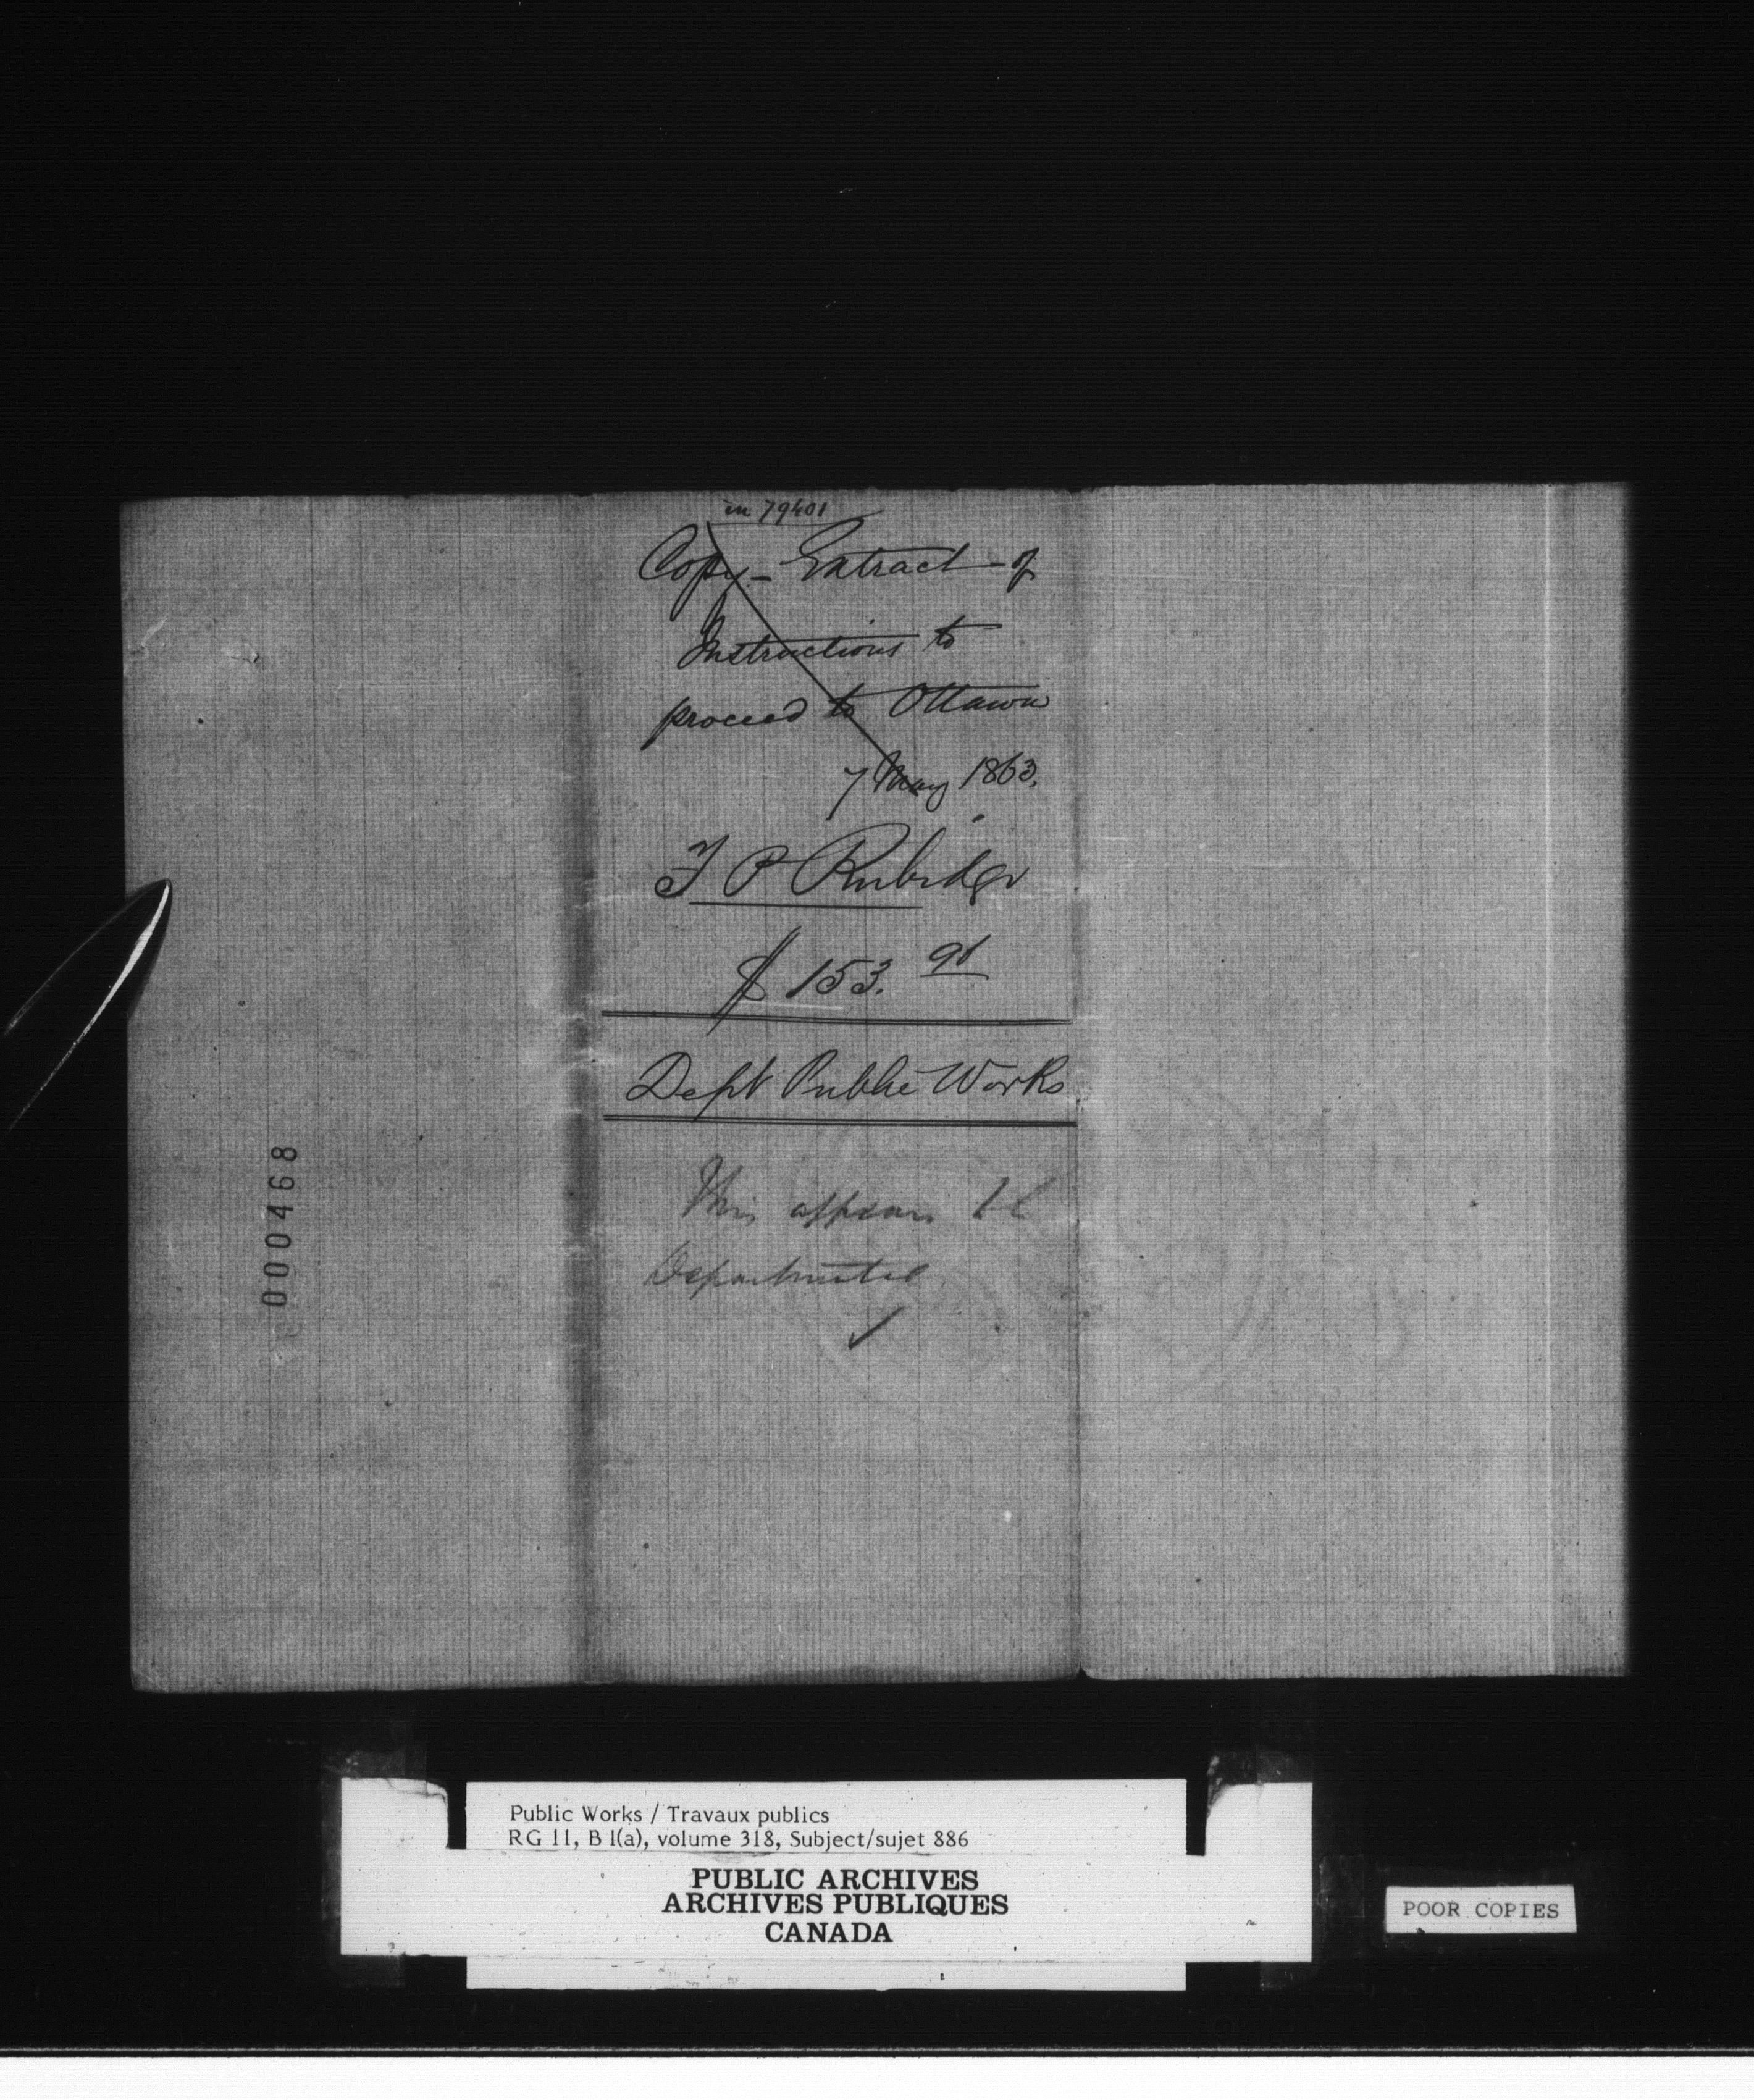 in 79401
Copy - Extract - of
Instructions to
proceed to Ottawa
7 May 1863.
F P Rubidge
$ 153. 90
Dept Public Works
This appears
Departmental
000468
Public Works / Travaux publics
RG 11, B 1(a), volume 318, Subject/sujet 886
PUBLIC ARCHIVES
ARCHIVES PUBLIQUES
CANADA
POOR COPIES